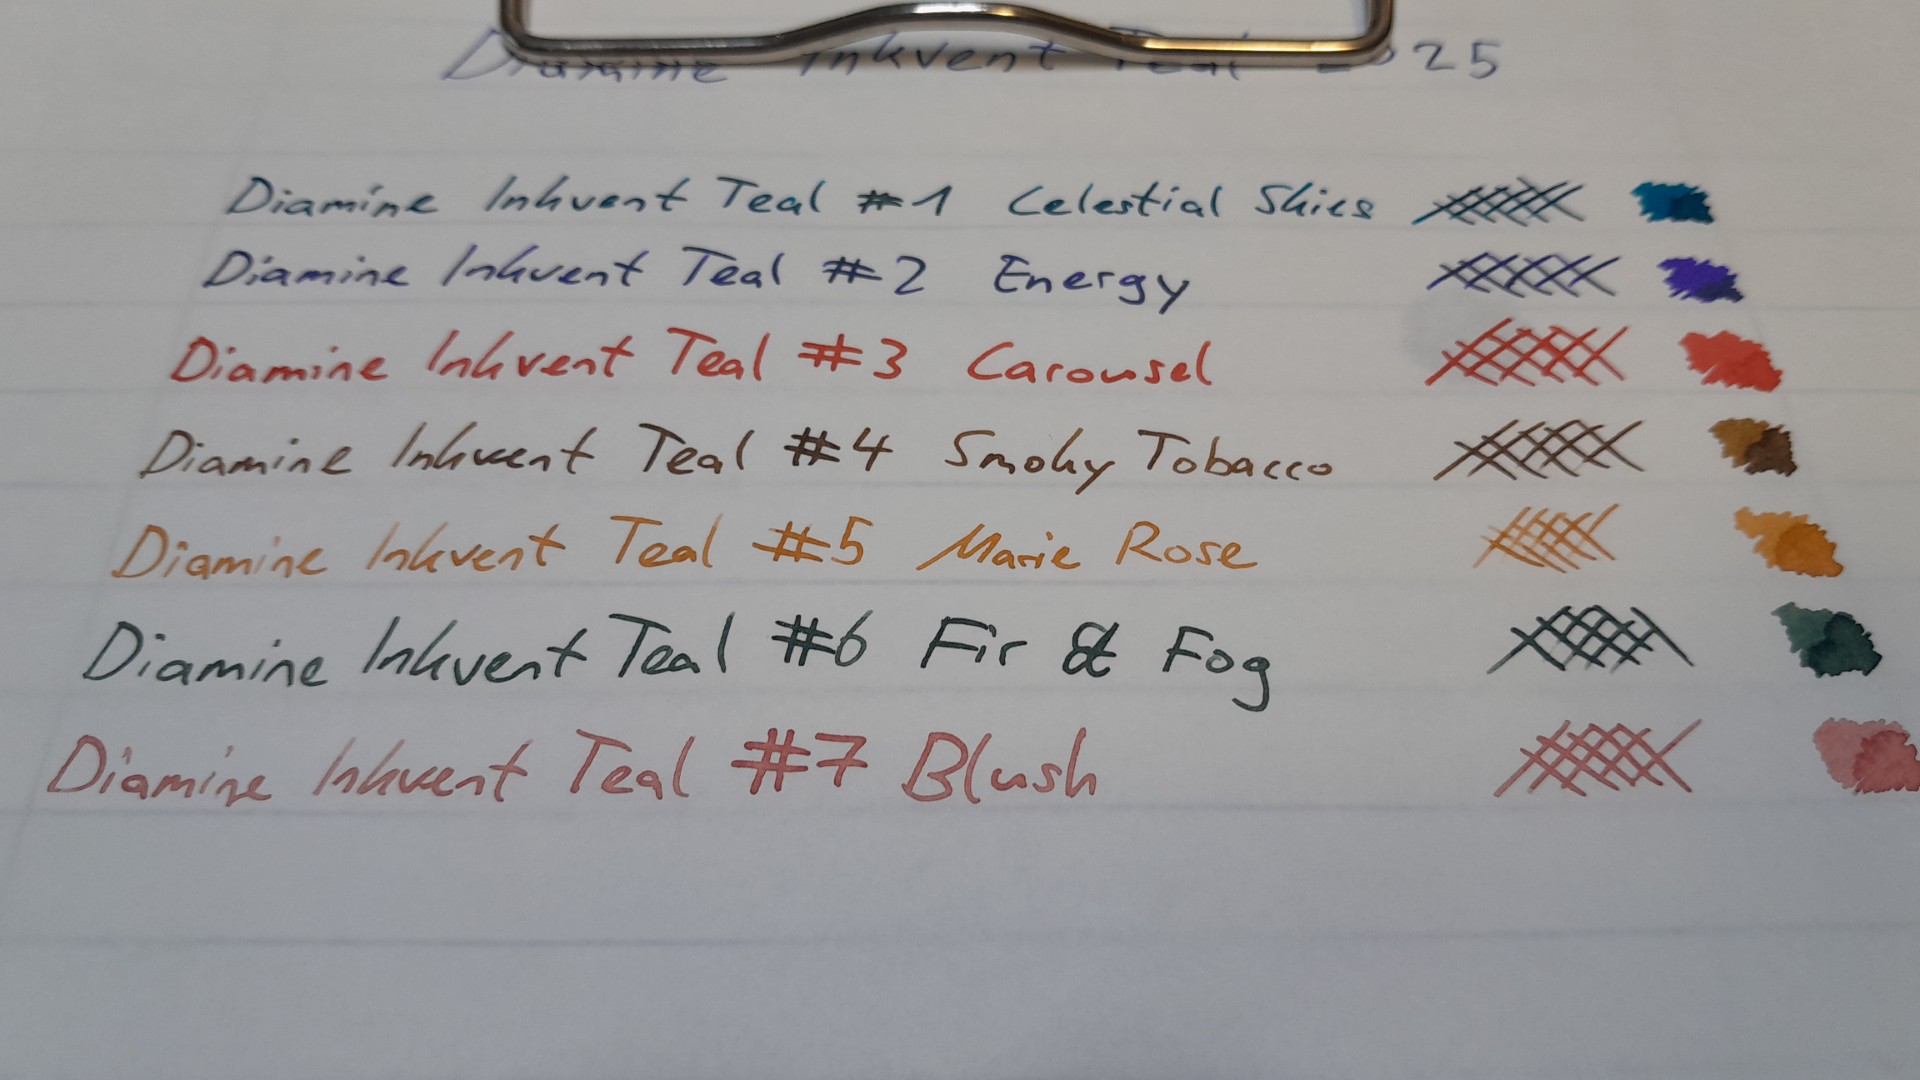 Diamine Inkvent Teal 2025
Diamine Inkvent Teal #1 Celestial Skies
Diamine Inkvent Teal #2 Energy
Diamine Inkvent Teal #3 Carousel
Diamine Inkvent Teal #4 Smoky Tobacco
Diamine Inkvent Teal #5 Marie Rose
Diamine Inkvent Teal #6 Fir & Fog
Diamine Inkvent Teal #7 Blush